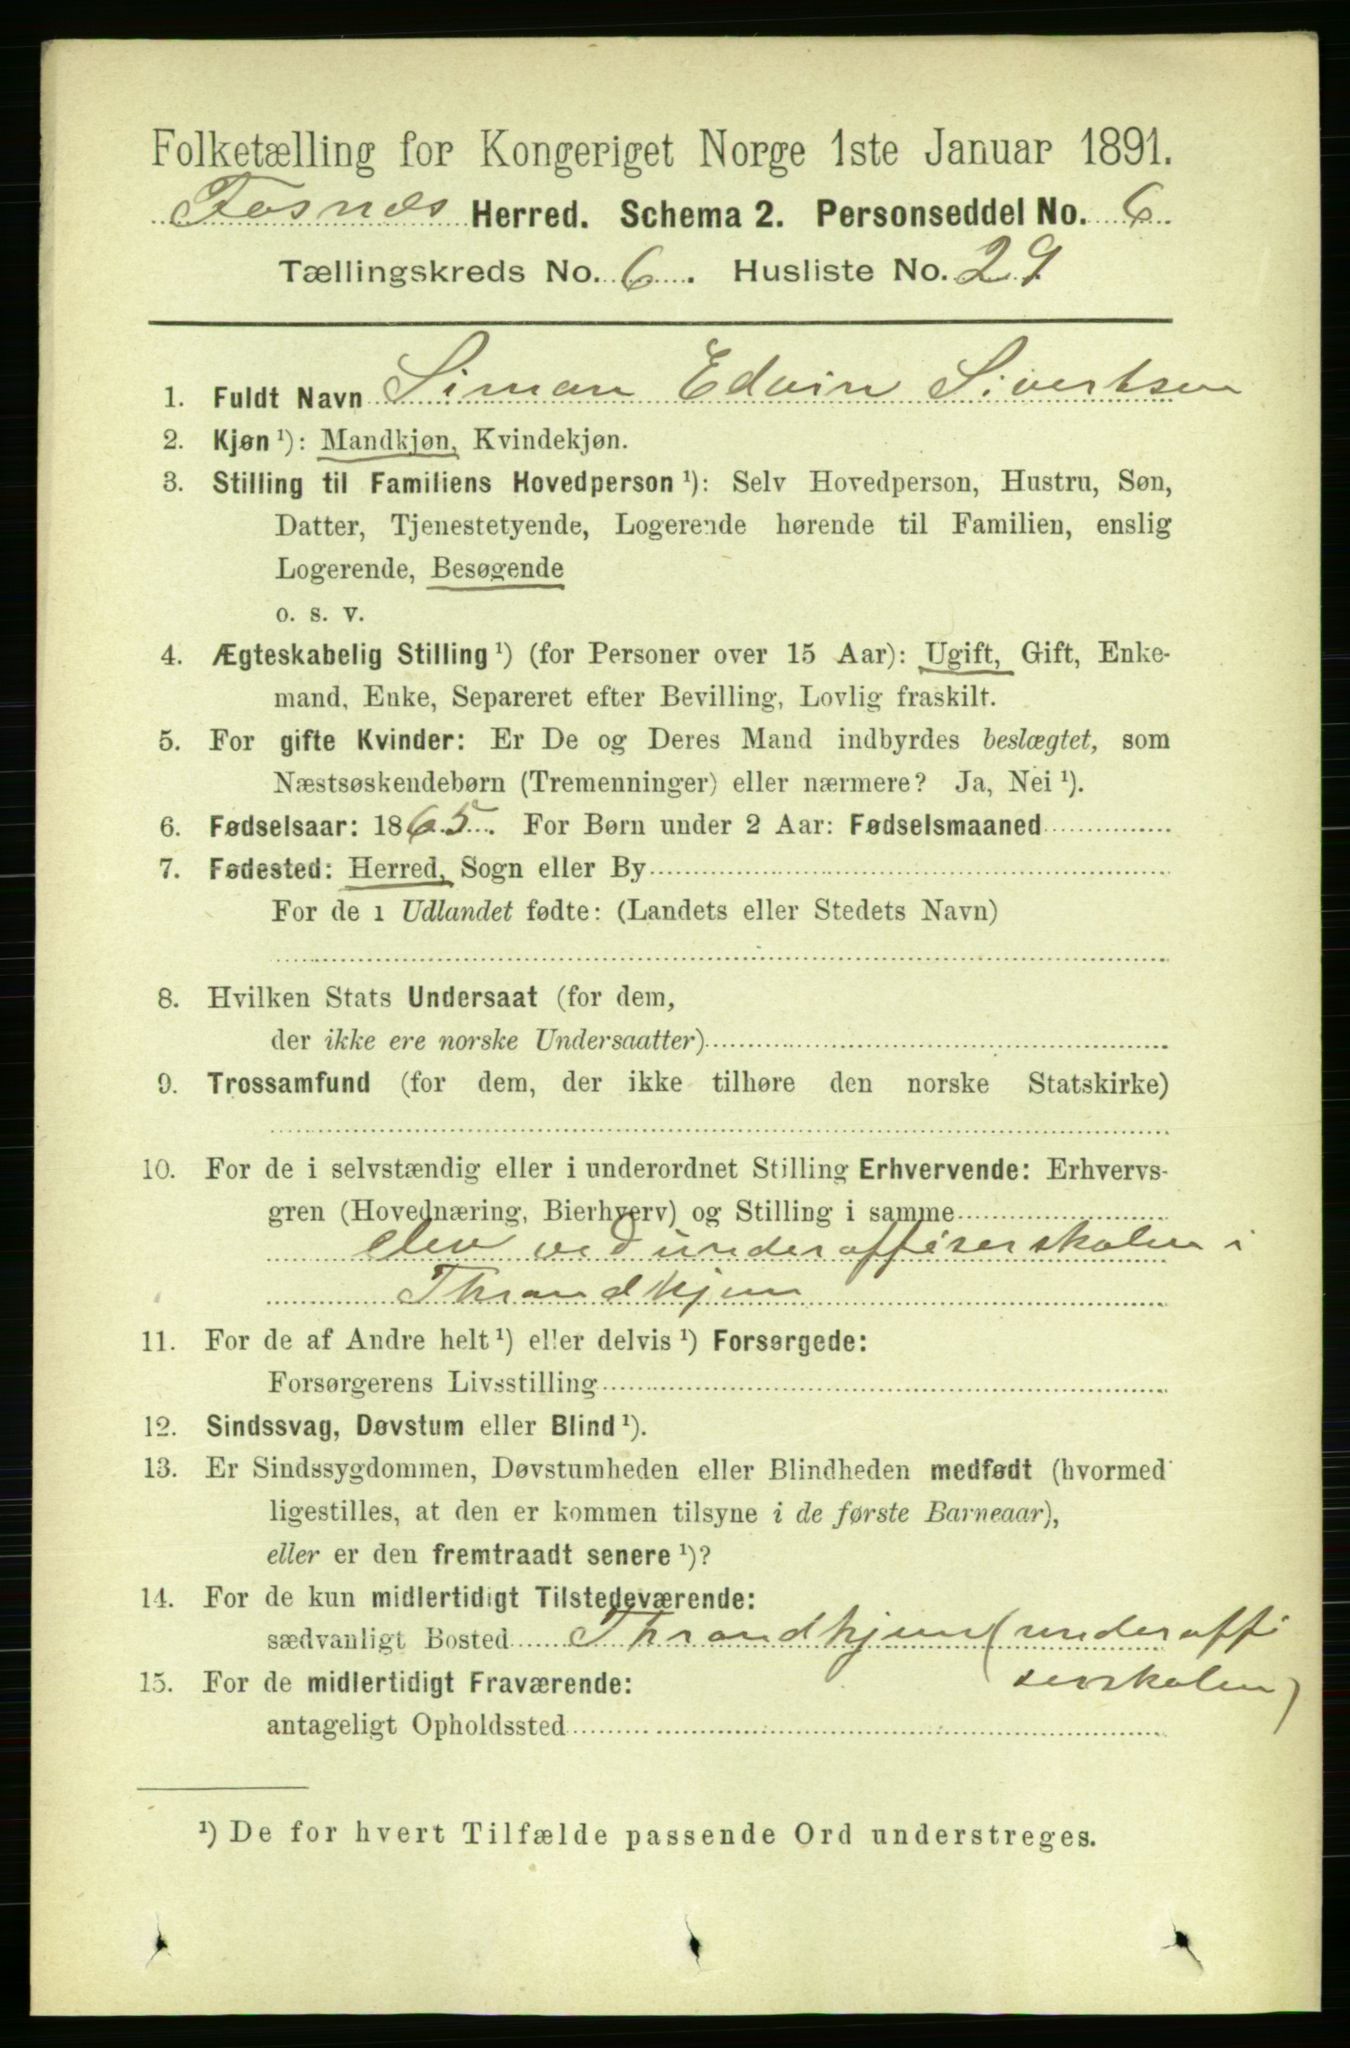 Folketælling for Kongeriget Norge 1ste Januar 1891.
Fosnæs Herred. Schema 2. Personseddel No. 6
Tællingskreds No. 6. Husliste No. 29
1. Fuldt Navn Simon Edvin Sivertsen
2. Kjøn ¹): Mandkjøn, Kvindekjøn.
3. Stilling til Familiens Hovedperson ¹): Selv Hovedperson, Hustru, Søn,
Datter, Tjenestetyende, Logerende hørende til Familien, enslig
Logerende, Besøgende
o. s. v.
4. Ægteskabelig Stilling ¹) (for Personer over 15 Aar): Ugift, Gift, Enke-
mand, Enke, Separeret efter Bevilling, Lovlig fraskilt.
5. For gifte Kvinder: Er De og Deres Mand indbyrdes beslægtet, som
Næstsøskendebørn (Tremenninger) eller nærmere? Ja, Nei ¹).
6. Fødselsaar: 1865. For Børn under 2 Aar: Fødselsmaaned
7. Fødested: Herred, Sogn eller By
For de i Udlandet fødte: (Landets eller Stedets Navn)
8. Hvilken Stats Undersaat (for dem,
der ikke ere norske Undersaatter)
9. Trossamfund (for dem, der ikke tilhøre den norske Statskirke)
10. For de i selvstændig eller i underordnet Stilling Erhvervende: Erhvervs-
gren (Hovednæring, Bierhverv) og Stilling i samme
elev ved underoffiserskolen i
Throndhjem
11. For de af Andre helt ¹) eller delvis ¹) Forsørgede:
Forsørgerens Livsstilling
12. Sindssvag, Døvstum eller Blind ¹).
13. Er Sindssygdommen, Døvstumheden eller Blindheden medfødt (hvormed
ligestilles, at den er kommen tilsyne i de første Barneaar),
eller er den fremtraadt senere ¹)?
14. For de kun midlertidigt Tilstedeværende:
sædvanligt Bosted Throndhjem (underoffi
serskolen)
15. For de midlertidigt Fraværende:
antageligt Opholdssted
¹) De for hvert Tilfælde passende Ord understreges.